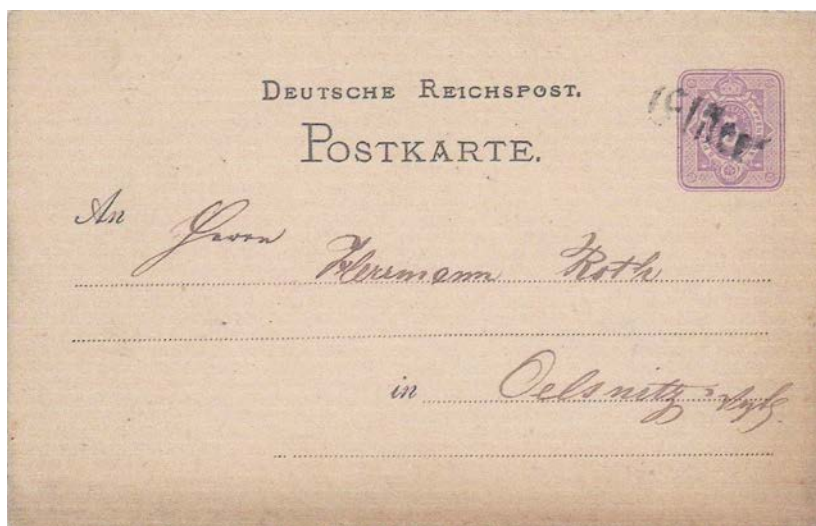 DEUTSCHE REICHSPOST.
POSTKARTE.
An Herrn
Herrmann Roth
in Oelsnitz